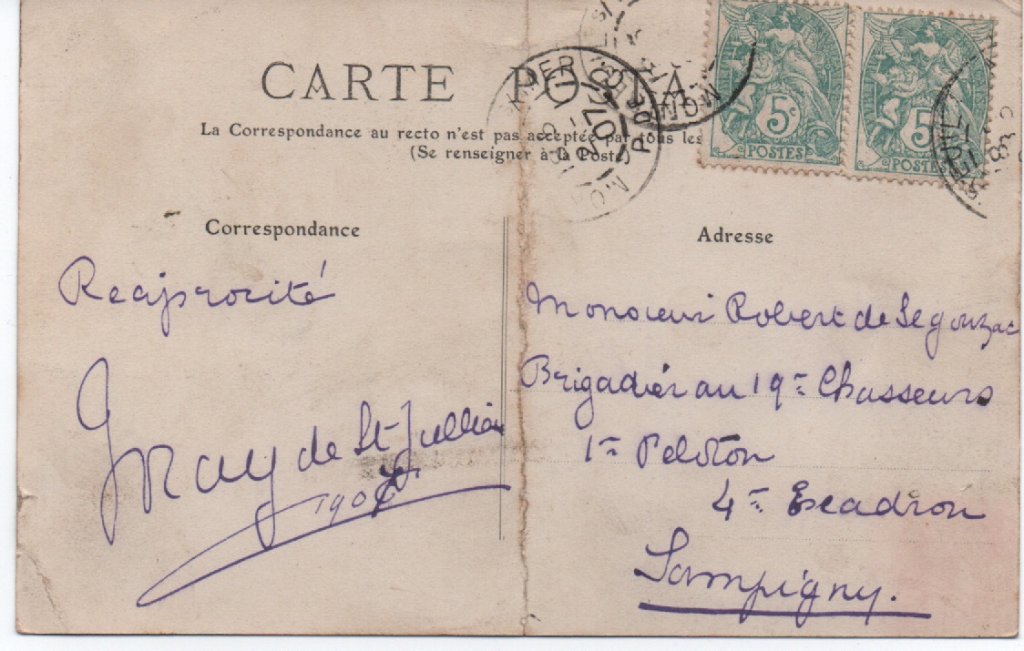 CARTE PO
La Correspondance au recto n'est pas acceptée par tous les
(Se renseigner à la Poste)
5c
POSTES
5
POSTES
Correspondance
Réciprocité
de St Jullien
190
Adresse
Monsieur Robert de Segonzac
Brigadier au 19e Chasseurs
1er Peloton
4e Escadron
Sampigny.